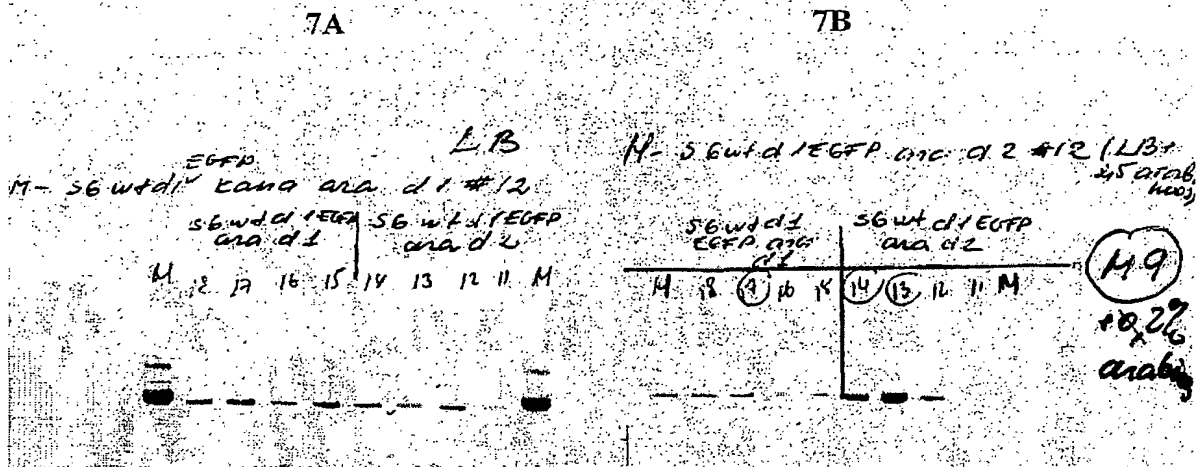 7A
7B
LB
EGFP
M- S6 wtd1 kana ara d1 #12
S6 wtd1EGFP ara d1
S6 wtd1EGFP ara d2
M 18 17 16 15 14 13 12 11 M
M- S6wtd1EGFP ara d2 #12 (LB+
S6wtd1 EGFP ara d1
S6wtd1EGFP ara d2
M 18 17 16 15 14 13 12 11 M
M9
+0,2%